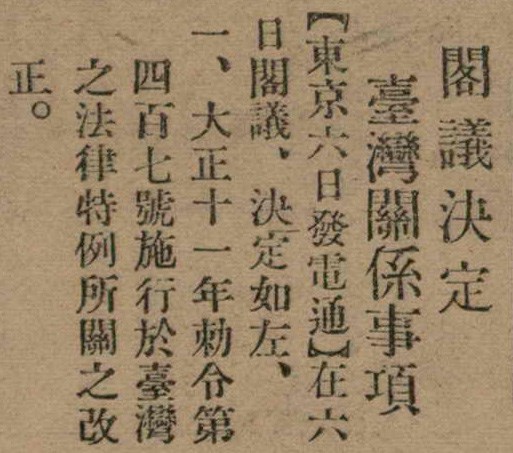 閣議決定
臺灣關係事項
【東京六日發電通】在六
日閣議、決定如左、
一、大正十一年勅令第
四百七號施行於臺灣
之法律特例所關之改
正。